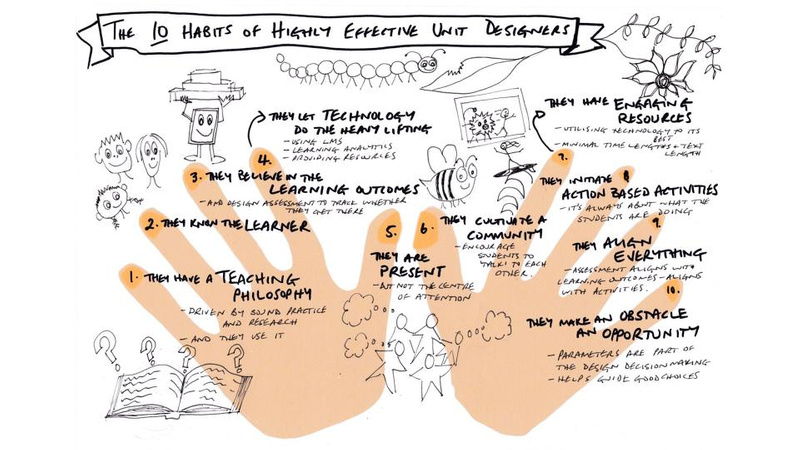 THE 10 HABITS OF HIGHLY EFFECTIVE UNIT DESIGNERS
1. THEY HAVE A TEACHING
PHILOSOPHY
- DRIVEN BY SOUND PRACTICE
AND RESEARCH
- AND THEY USE IT
2. THEY KNOW THE LEARNER
3. THEY BELIEVE IN THE
LEARNING OUTCOMES
- AND DESIGN ASSESSMENT TO TRACK WHETHER
THEY GET THERE
4.
THEY LET TECHNOLOGY
DO THE HEAVY LIFTING
- USING LMS
- LEARNING ANALYTICS
- PROVIDING RESOURCES
5.
THEY ARE
PRESENT
- BUT NOT THE CENTRE
OF ATTENTION
6.
THEY CULTIVATE A
COMMUNITY
- ENCOURAGE
STUDENTS TO
TALK TO EACH
OTHER.
7.
THEY HAVE ENGAGING
RESOURCES
- UTILISING TECHNOLOGY TO ITS
BEST
- MINIMAL TIME LENGTHS + TEXT
LENGTH
8
THEY INITIATE
ACTION BASED ACTIVITIES
- IT'S ALWAYS ABOUT WHAT THE
STUDENTS ARE DOING
9.
THEY ALIGN
EVERYTHING
- ASSESSMENT ALIGNS WITH
LEARNING OUTCOMES - ALIGNS
WITH ACTIVITIES.
10.
THEY MAKE AN OBSTACLE
AN OPPORTUNITY
- PARAMETERS ARE PART OF
THE DESIGN DECISION MAKING
- HELPS GUIDE GOOD CHOICES
? ? ? ?